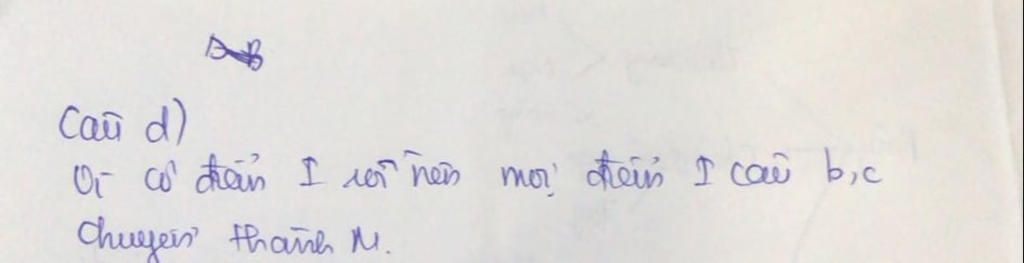 Câu d)
Vì có điểm I rồi nên mọi điểm I câu b,c
chuyển thành M.